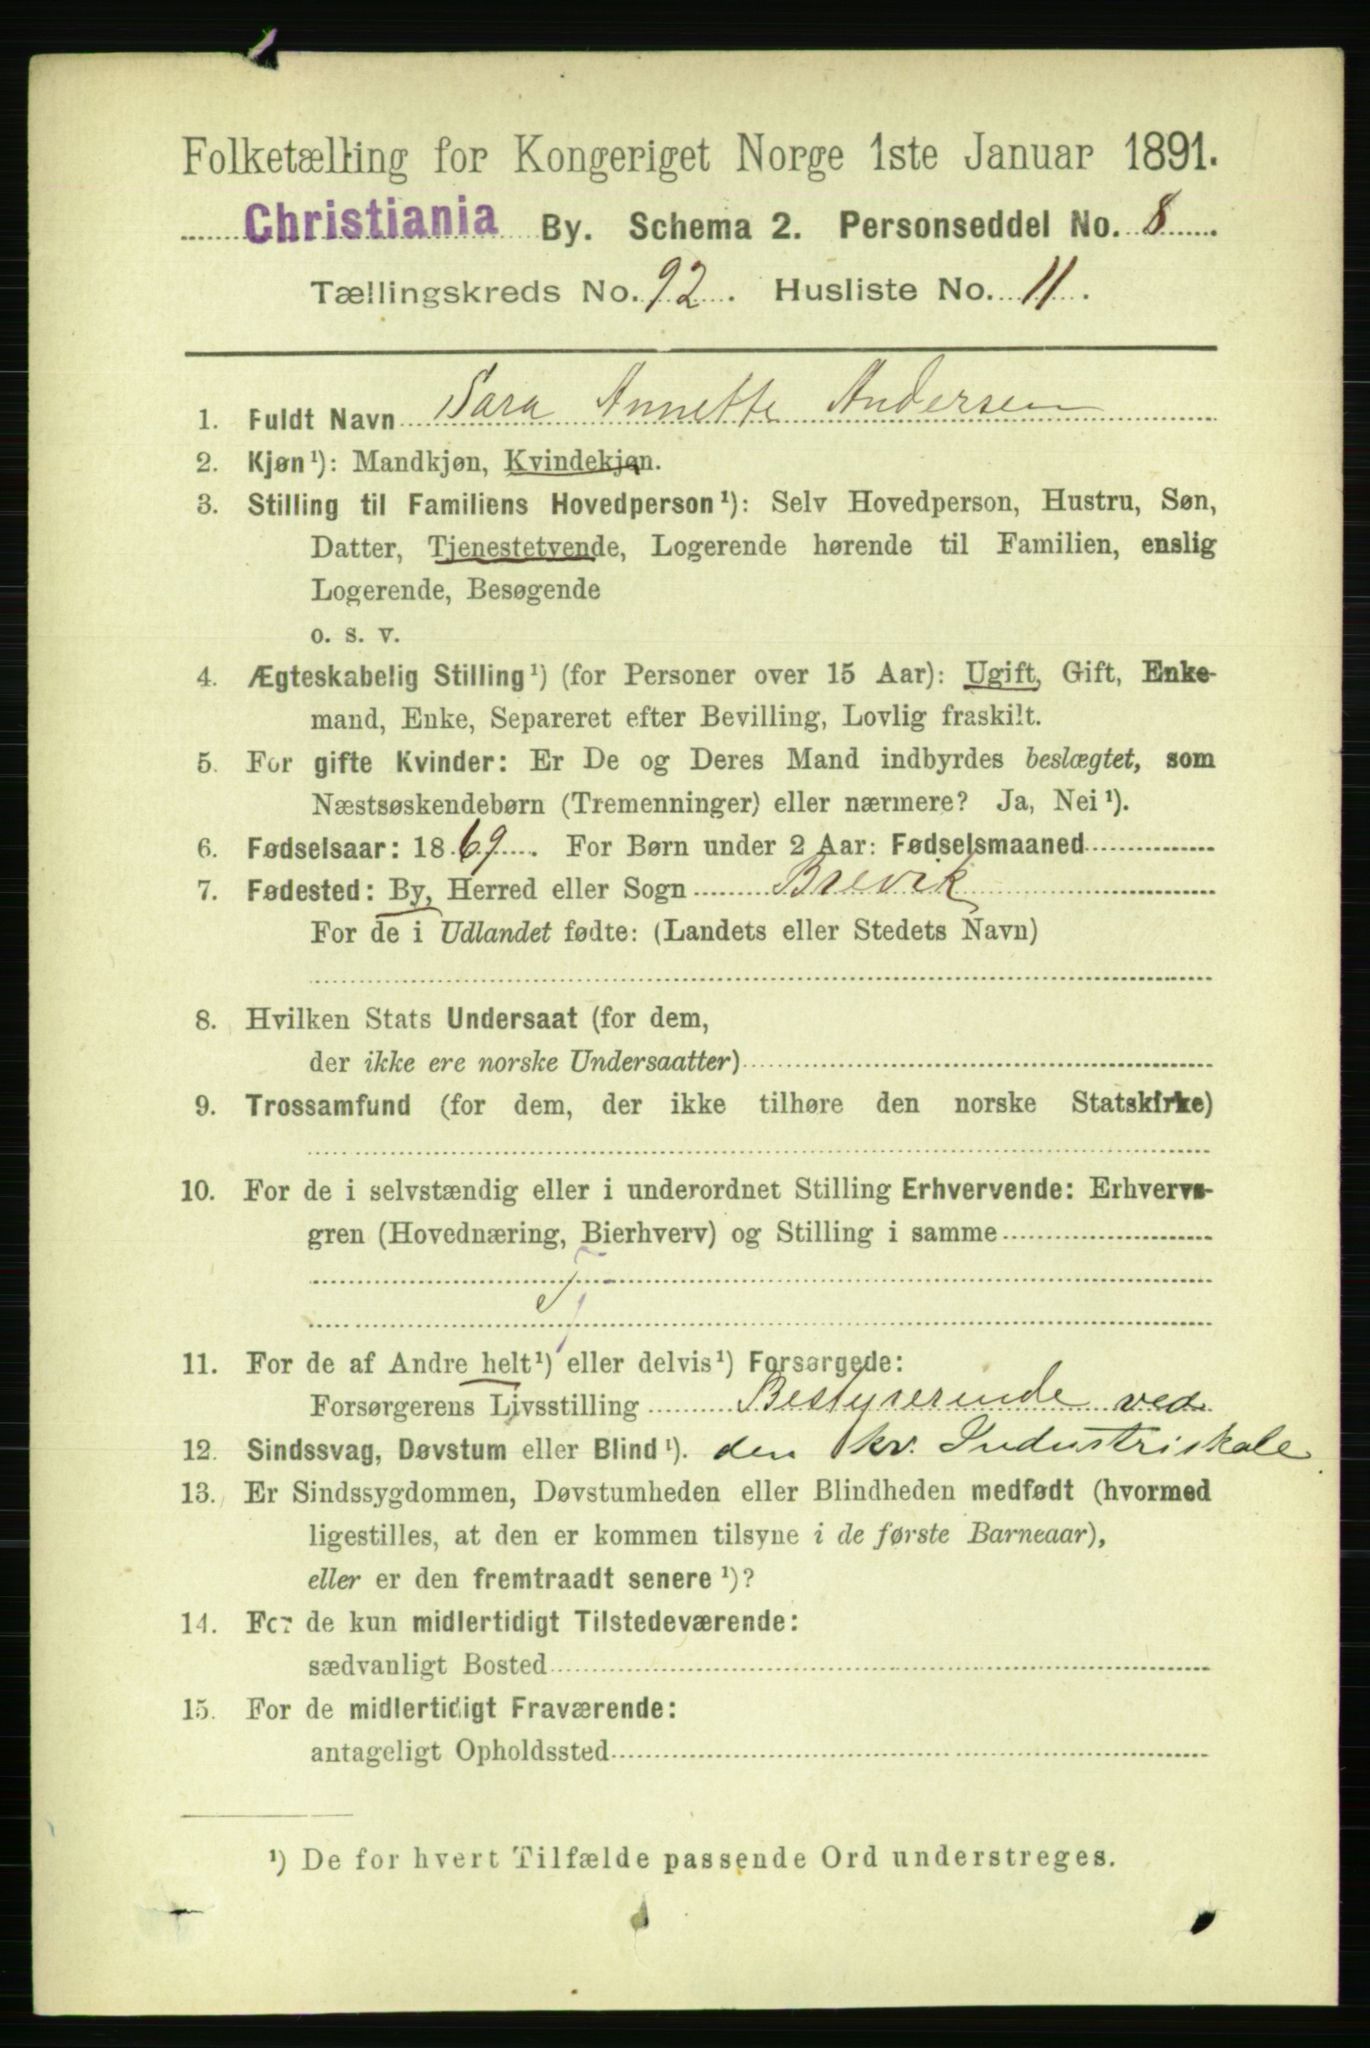 Folketælling for Kongeriget Norge 1ste Januar 1891.
Christiania By. Schema 2. Personseddel No. 8.
Tællingskreds No. 92. Husliste No. 11.
1. Fuldt Navn Sara Annette Andersen
2. Kjøn¹): Mandkjøn, Kvindekjøn.
3. Stilling til Familiens Hovedperson¹): Selv Hovedperson, Hustru, Søn,
Datter, Tjenestetyende, Logerende hørende til Familien, enslig
Logerende, Besøgende
o. s. v.
4. Ægteskabelig Stilling¹) (for Personer over 15 Aar): Ugift, Gift, Enke-
mand, Enke, Separeret efter Bevilling, Lovlig fraskilt.
5. For gifte Kvinder: Er De og Deres Mand indbyrdes beslægtet, som
Næstsøskendebørn (Tremenninger) eller nærmere? Ja, Nei¹).
6. Fødselsaar: 1869. For Børn under 2 Aar: Fødselsmaaned
7. Fødested: By, Herred eller Sogn Brevik
For de i Udlandet fødte: (Landets eller Stedets Navn)
8. Hvilken Stats Undersaat (for dem,
der ikke ere norske Undersaatter)
9. Trossamfund (for dem, der ikke tilhøre den norske Statskirke)
10. For de i selvstændig eller i underordnet Stilling Erhvervende: Erhvervs-
gren (Hovednæring, Bierhverv) og Stilling i samme
11. For de af Andre helt¹) eller delvis¹) Forsørgede:
Forsørgerens Livsstilling Bestyrerinde ved
12. Sindssvag, Døvstum eller Blind¹). den kv. Industriskole
13. Er Sindssygdommen, Døvstumheden eller Blindheden medfødt (hvormed
ligestilles, at den er kommen tilsyne i de første Barneaar),
eller er den fremtraadt senere¹)?
14. For de kun midlertidigt Tilstedeværende:
sædvanligt Bosted
15. For de midlertidigt Fraværende:
antageligt Opholdssted
¹) De for hvert Tilfælde passende Ord understreges.